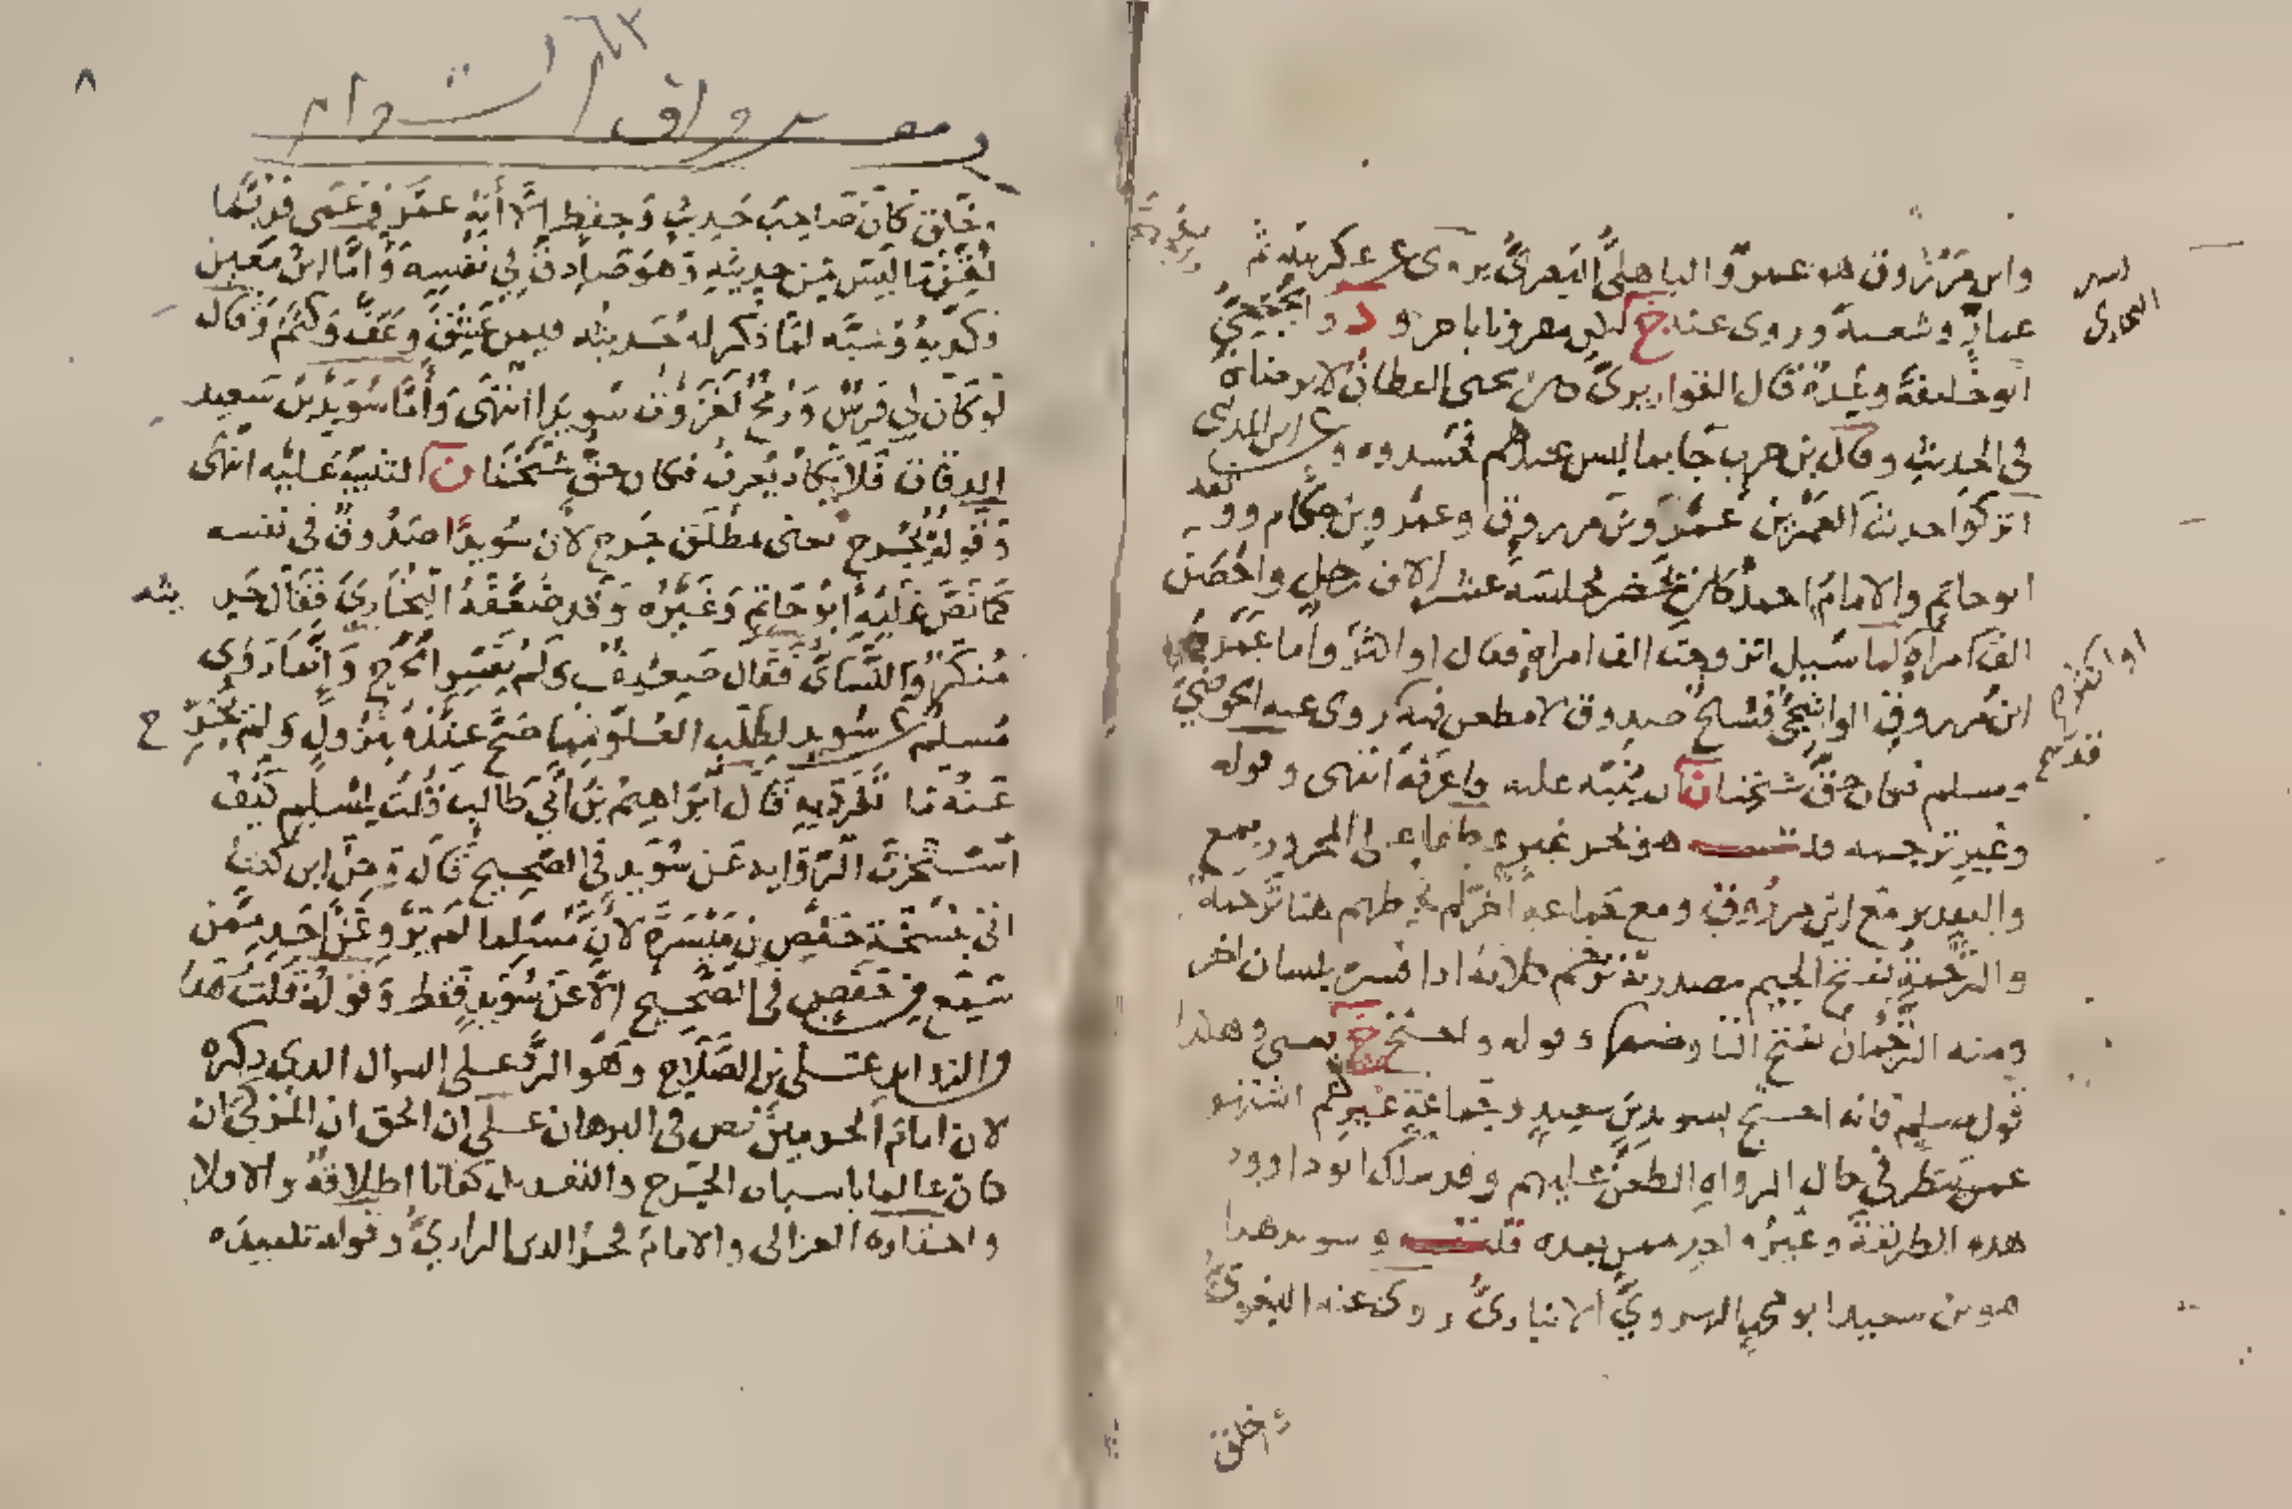 وابن مرزوق هو عمرو الباهلي البصري يروي عن عكرمة بن
عمار وشعبة وروى عنه خ لكن مقرونا بآخر و د والجمحي
ابو خليفة وعدة قال القواريري كان يحيى القطان لا يرضاه
في الحديث وقال بن حرب جا بما ليس عندهم فحسدوه و عن ابن المديني
اتركوا حديث العمرين عمرو بن مرزوق وعمرو بن حكام ووثقه
ابو حاتم والامام احمد كان يحضر مجلسه عشرة الاف رجل واحصن
الف امراة لما سيل اتزوجت الف امراة فقال او اكثر واما عمرو
ابن مرزوق الواشحي فشيخ صدوق لا مطعن فيه روى عنه الحوضي
ومسلم فكان حق شيخنا ن ان ينبه عليه واعرفه انتهى وقوله
وغير ترجمه قلت هو بحر غير عطفا على المجرور بمع
والتقدير مع ابن مرزوق ومع جماعة اخر لم يحط بهم هنا ترجمة
والترجمة بفتح الجيم مصدر ترجم كلامه اذا فسره بلسان اخر
ومنه الترجمان بفتح التا وضمها وقوله واحتج خ يعني وهكذا
فعل مسلم فانه احتج بسويد بن سعيد وجماعة غيرهم اشتهر
عمن ينظر في حال الرواة الطعن عليهم وقد سلك ابو داوود
هذه الطريقة وغير واحد ممن بعده قلت و سويد هذا
هو بن سعيد ابو محمد الهروي الانباري روى عنه البغوي
وخلق
٨
وقف رواق الشوام
وخلق كان صاحب حديث وحفظ الا انه عمر وعمى فربما
لقن ما ليس من حديثه وهو صادق في نفسه واما ابن معين
فكذبه وسبه لما ذكر له حديثه فيمن عشق وعف وكتم وقال
لو كان لي فرس ورمح لغزوت سويدا انتهى واما سويد بن سعيد
الدقاق فلا يكاد يعرف فكان حق شيخنا ن التنبيه عليه انتهى
وقوله بجرح يعني مطلق جرح لان سويدا صدوق في نفسه
كما نص عليه ابو حاتم وغيره وقد ضعفه البخاري فقال حديثه
منكر والنسائي فقال ضعيف ولم يفسر الجرح وانما روى
مسلم عن سويد لطلب العلو فيما صح عنده بنزول ولم يخرج
عنه ما تفرد به قال ابراهيم بن ابي طالب قلت لمسلم كيف
استخرت الرواية عن سويد في الصحيح قال ومن اين كنت
اتي بنسخة حفص بن ميسرة لان مسلما لم يرو عن احد ممن
سمع من حفص في الصحيح الا عن سويد فقط وقوله قلت هذا
من الزوايد على بن الصلاح وهو الرد على السوال الذي ذكره
لان امام الحرمين نص في البرهان على ان الحق ان المزكي ان
كان عالما باسباب الجرح والتعديل كفانا اطلاقه والا فلا
واختاره الغزالي والامام فخر الدين الرازي وقوله تلميذه